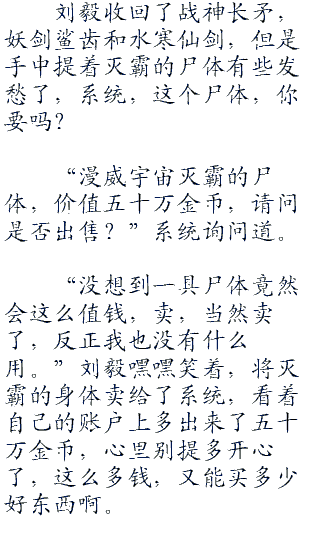 刘毅收回了战神长矛，
妖剑鲨齿和水寒仙剑，但是
手中提着灭霸的尸体有些发
愁了，系统，这个尸体，你
要吗？
“漫威宇宙灭霸的尸
体，价值五十万金币，请问
是否出售？”系统询问道。
“没想到一具尸体竟然
会这么值钱，卖，当然卖
了，反正我也没有什么
用。”刘毅嘿嘿笑着，将灭
霸的身体卖给了系统，看着
自己的账户上多出来了五十
万金币，心里别提多开心
了，这么多钱，又能买多少
好东西啊。